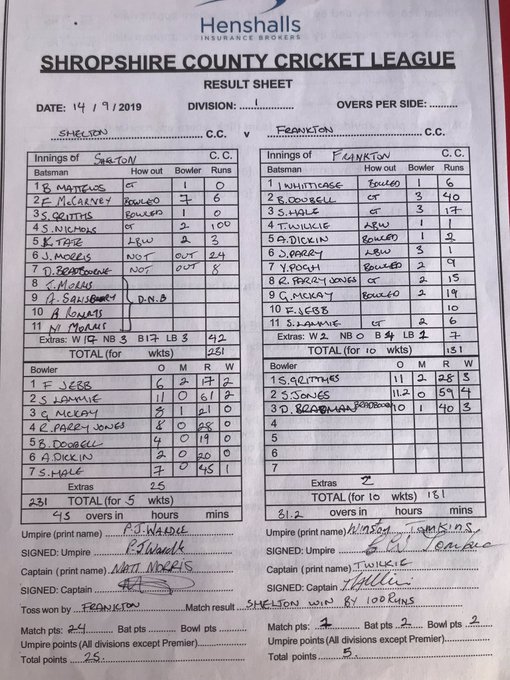 Henshalls
INSURANCE BROKERS
SHROPSHIRE COUNTY CRICKET LEAGUE
RESULT SHEET
DATE: 14 / 9 / 2019 DIVISION: 1 OVERS PER SIDE: ..........
SHELTON C.C. v FRANKTON C.C.
Innings of SHELTON C. C.
Batsman How out Bowler Runs
1 B. MATTHEWS CT 1 0
2 F. McCARNEY BOWLED 7 6
3 S. GRITHS BOWLED 1 0
4 S. NICHOLS CT 2 100
5 K. TATE LBW 2 3
6 J. MORRIS NOT OUT 24
7 D. BRADBOURNE NOT OUT 8
8 T. MORRIS
9 A. SALISBURY D.N.B
10
11 M MORRIS
Extras: W 19 NB 3 B 17 LB 3 42
TOTAL (for wkts) 231
Bowler O M R W
1 F JEBB 6 2 17 2
2 S LAMMIE 11 0 61 2
3 G. MCKAY 8 1 21 0
4 R. PARRY JONES 8 0 28 0
5 B. DOOBELL 4 0 19 0
6 A. DICKIN 2 0 20 0
7 S. HALE 7 0 45 1
Extras 25
231 TOTAL (for 5 wkts)
45 overs in hours mins
Innings of FRANKTON C. C.
Batsman How out Bowler Runs
1 I WHITTICASE BOWLED 1 6
2 B. DOUBELL CT 3 40
3 S. HALE CT 3 17
4 T. WILKIE LBW 1 1
5 A. DICKIN BOWLED 1 2
6 J. PARRY LBW 3 1
7 Y. POGH BOWLED 2 9
8 R. PARRY JONES CT 2 15
9 G. MCKAY BOWLED 2 19
10 F. JEBB 10
11 S. LAMMIE CT 2 6
Extras: W 2 NB 0 B 4 LB 1 7
TOTAL (for 10 wkts) 131
Bowler O M R W
1 S. GRITTHES 11 2 28 3
2 S. JONES 11.2 0 59 4
3 D. BRADMAN BRADBOURN 10 1 40 3
4
5
6
7
Extras 2
TOTAL (for 10 wkts) 131
31.2 overs in hours mins
Umpire (print name) P.J. WARDLE
SIGNED: Umpire P.J Wardle
Captain (print name) MATT MORRIS
SIGNED: Captain
Umpire (print name) WINSTON TOMKINS
SIGNED: Umpire
Captain (print name) T WILKIE
SIGNED: Captain
Toss won by FRANKTON Match result SHELTON WIN BY 100 RUNS
Match pts: 24 Bat pts Bowl pts
Umpire points (All divisions except Premier)
Total points 25
Match pts: 1 Bat pts 2 Bowl pts 2
Umpire points (All divisions except Premier)
Total points 5